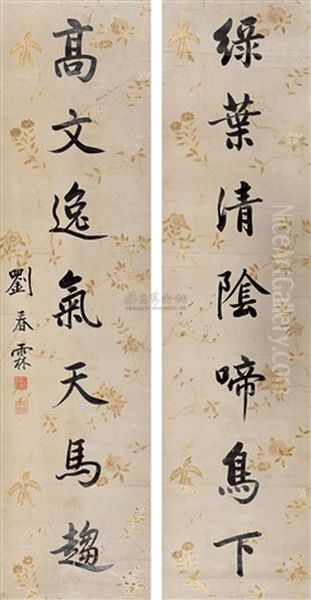 綠葉清陰啼鳥下
高文逸氣天馬趨
劉春霖
NiceArtGallery.com